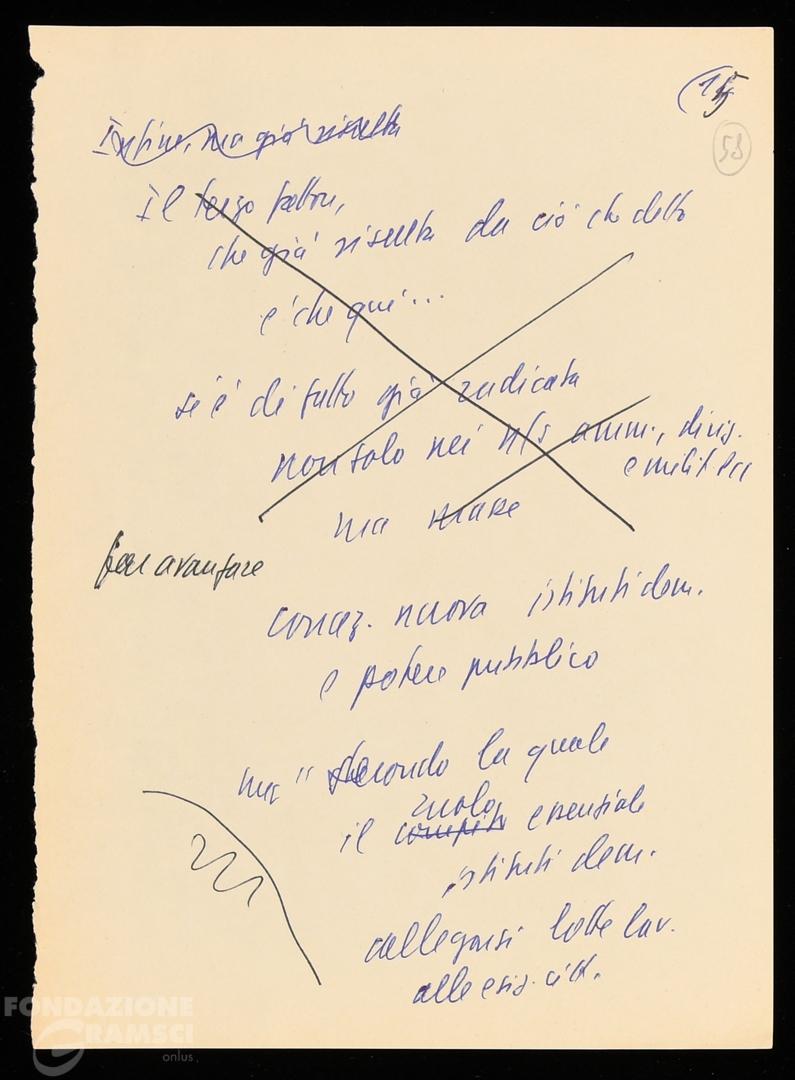 15
58
Infine, ma già risulta
Il terzo fattore,
che già risulta da ciò che detto
è che qui...
si è di fatto già radicata
non solo nei n/s amm., dirig.
e milit.
ma masse
far avanzare
concez. nuova istituti dem.
e potere pubblico
secondo la quale
ruolo
il compito essenziale
istituti dem.
collegarsi lotte lav.
alle esig. citt.
FONDAZIONE
GRAMSCI
onlus